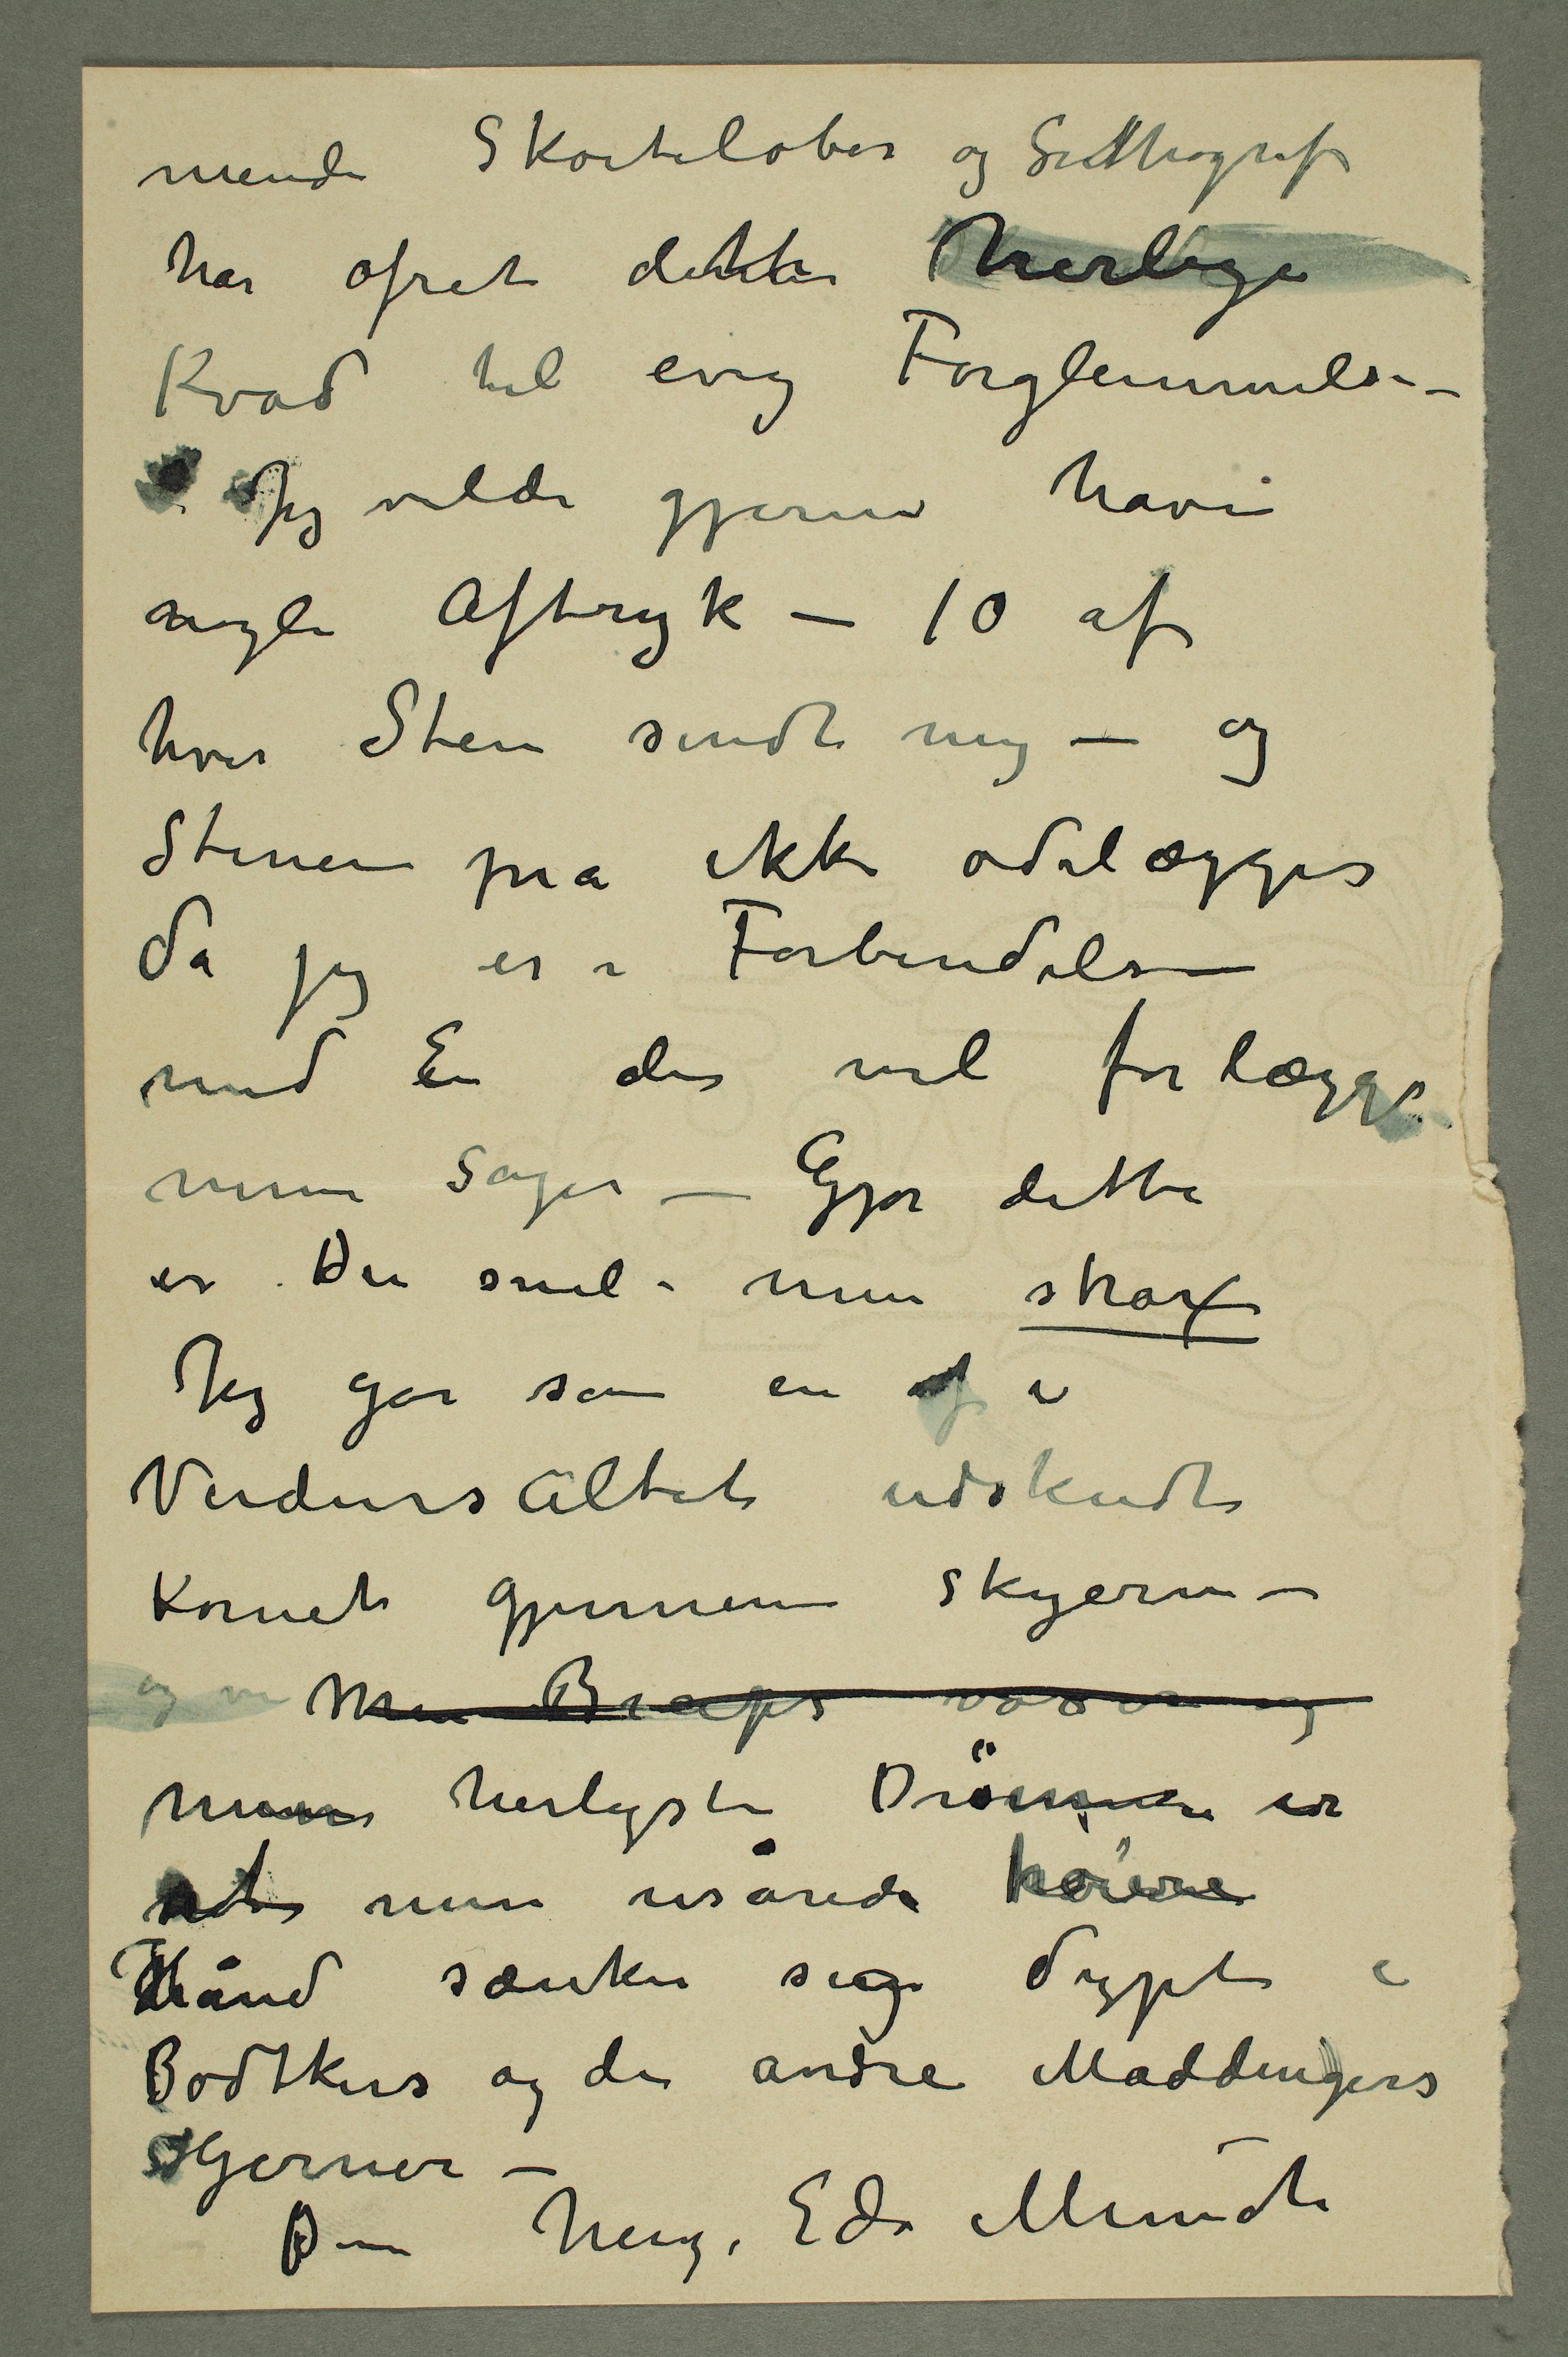 mende Skøiteløber og Litthograf
har ofret dette herlige
Kvad til evig Forglemmelse –
Jeg vilde gjerne have
nogle Aftryk – 10 af
hver Sten sendt mig – og
Stenene må ikke ødelægges
da jeg er i Forbindelse
med En der vil forlægge
mine Sager – Gjør dette
er Du snil – men strax
Jeg går som en af i
VerdensAltet udskudt
Komet gjennem skyerne –
og vi Men
mine herligste Drömme er
at min usårede höire
Hånd sænker sig dypt i
Bødtkers og de andre Maddingers
Hjerner –
Din heng. Edv Munch